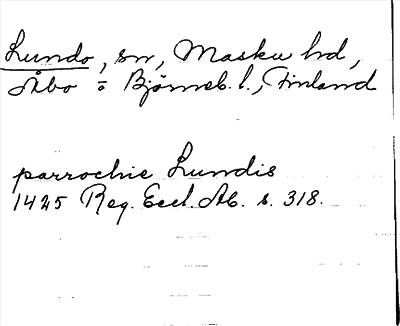 Lundo, sn, Masku hd,
Åbo o Björneb. l., Finland
parrochie Lundis
1425 Reg. Eccl. Ab. s. 318.